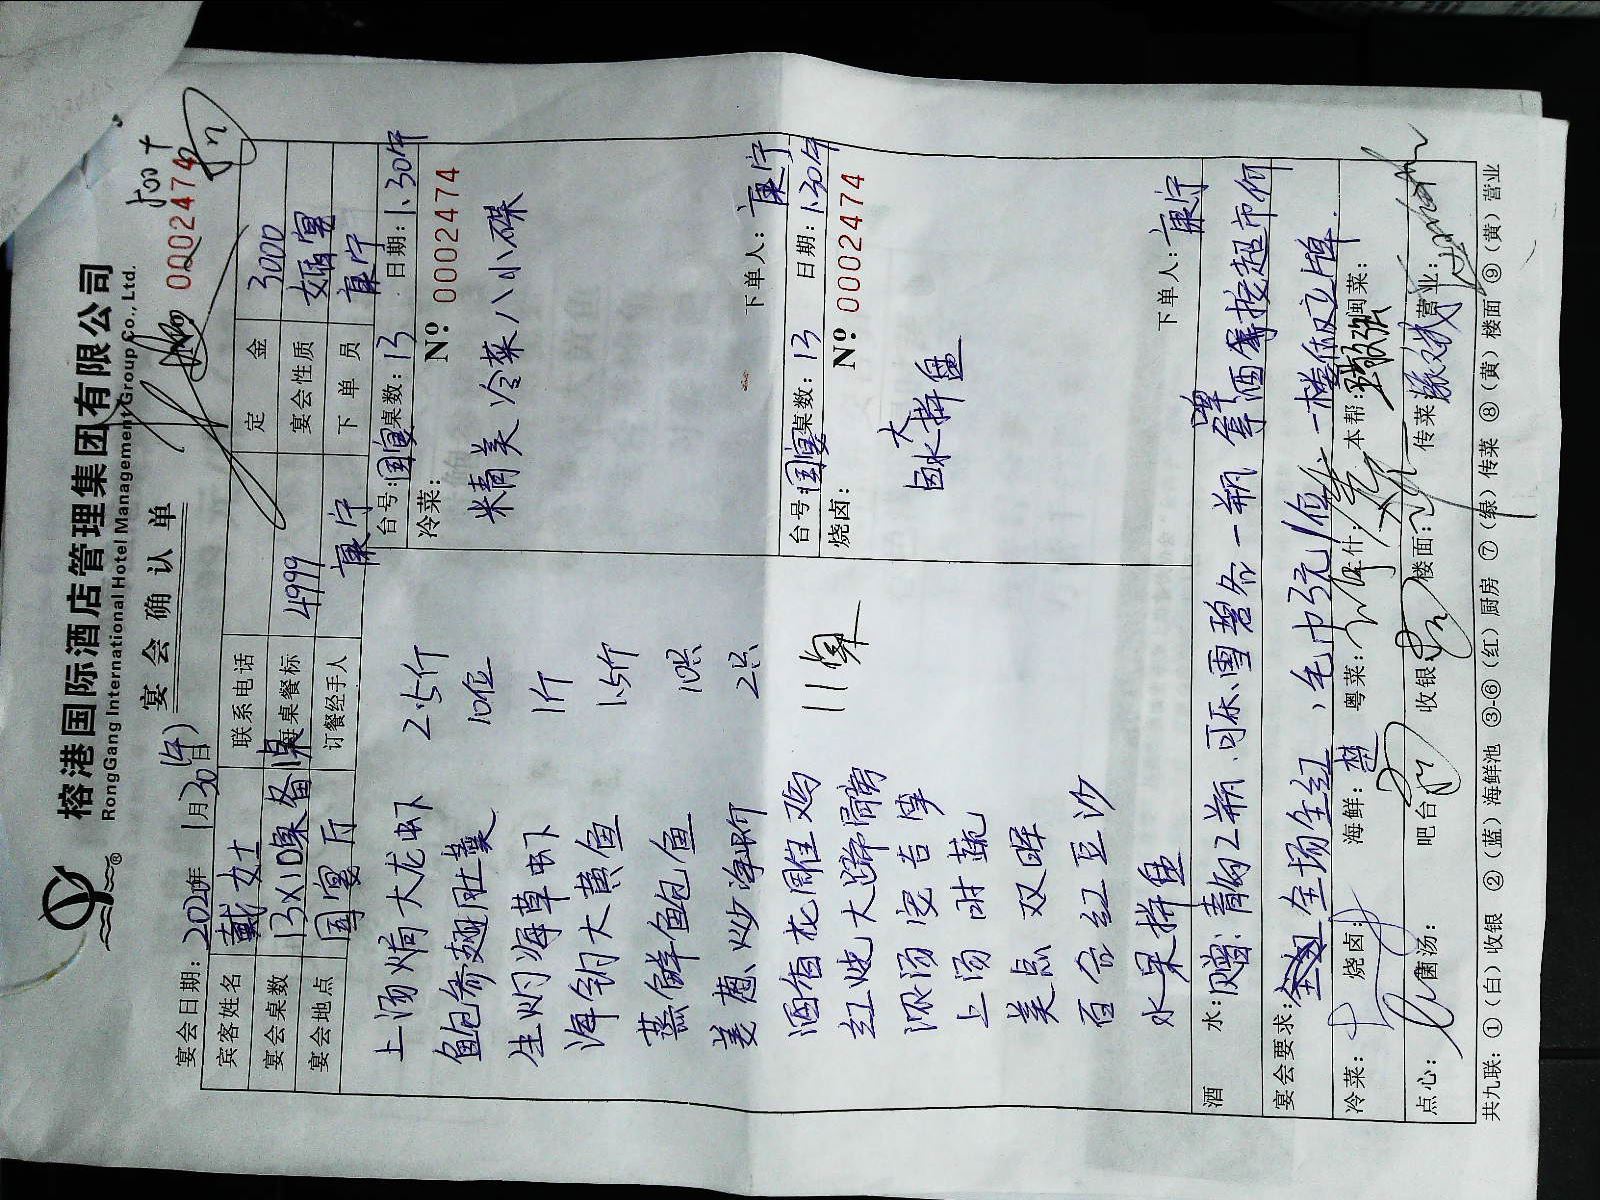 榕港国际酒店管理集团有限公司
RongGang International Hotel Management Group Co., Ltd.
宴会确认单
500+
0002474
宴会日期: 2021年 1月30日
宾客姓名 戴女士 联系电话 定金 3000
宴会桌数 13×10桌备1桌 每桌餐标 4999 宴会性质 婚宴
宴会地点 国宴厅 订餐经手人 康宁 下单员 康宁
上汤焗大龙虾 2.5斤
鲍参翅肚羹 10位
生灼海草虾 1斤
海钓大黄鱼 1.5斤
蒸鲜鲍鱼 10只
姜葱炒净蚧 2只
酒香花雕鸡
红烧大蹄髈
上汤时蔬
美点双晖
百合红豆沙
水果拼盘
台号: 国宴 桌数: 13 日期: 1.30午
冷菜: Nº 0002474
精美冷菜八小碟
下单人: 康宁
台号: 国宴 桌数: 13 日期: 1.30午
烧卤: Nº 0002474
卤水大拼盘
下单人: 康宁
酒水: 赠: 2瓶、可乐雪碧各一瓶 酒席按超市价
宴会要求: 全场全红, 毛巾3元/位 一楼饭立牌.
冷菜: 烧卤: 海鲜: 粤菜: 什: 本帮: 闽菜:
点心: 羹汤: 吧台 收银: 楼面: 传菜 营业:
共九联: ①(白)收银 ②(蓝)海鲜池 ③-⑥(红)厨房 ⑦(绿)传菜 ⑧(黄)楼面 ⑨(黄)营业